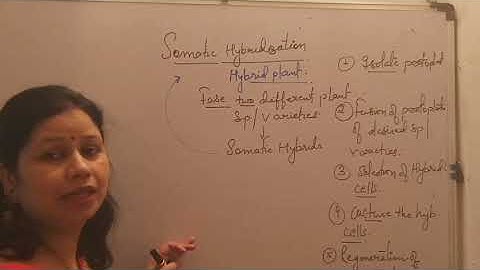 Somatic Hybridization
Hybrid plant.
Fuse two different plant
Sp/Varieties
Somatic Hybrids
① Isolate protoplast
② Fusion of protoplasts
of desired sp/
varieties.
③ Selection of Hybrid
cells.
④ Culture the hyb.
cells.
⑤ Regeneration of